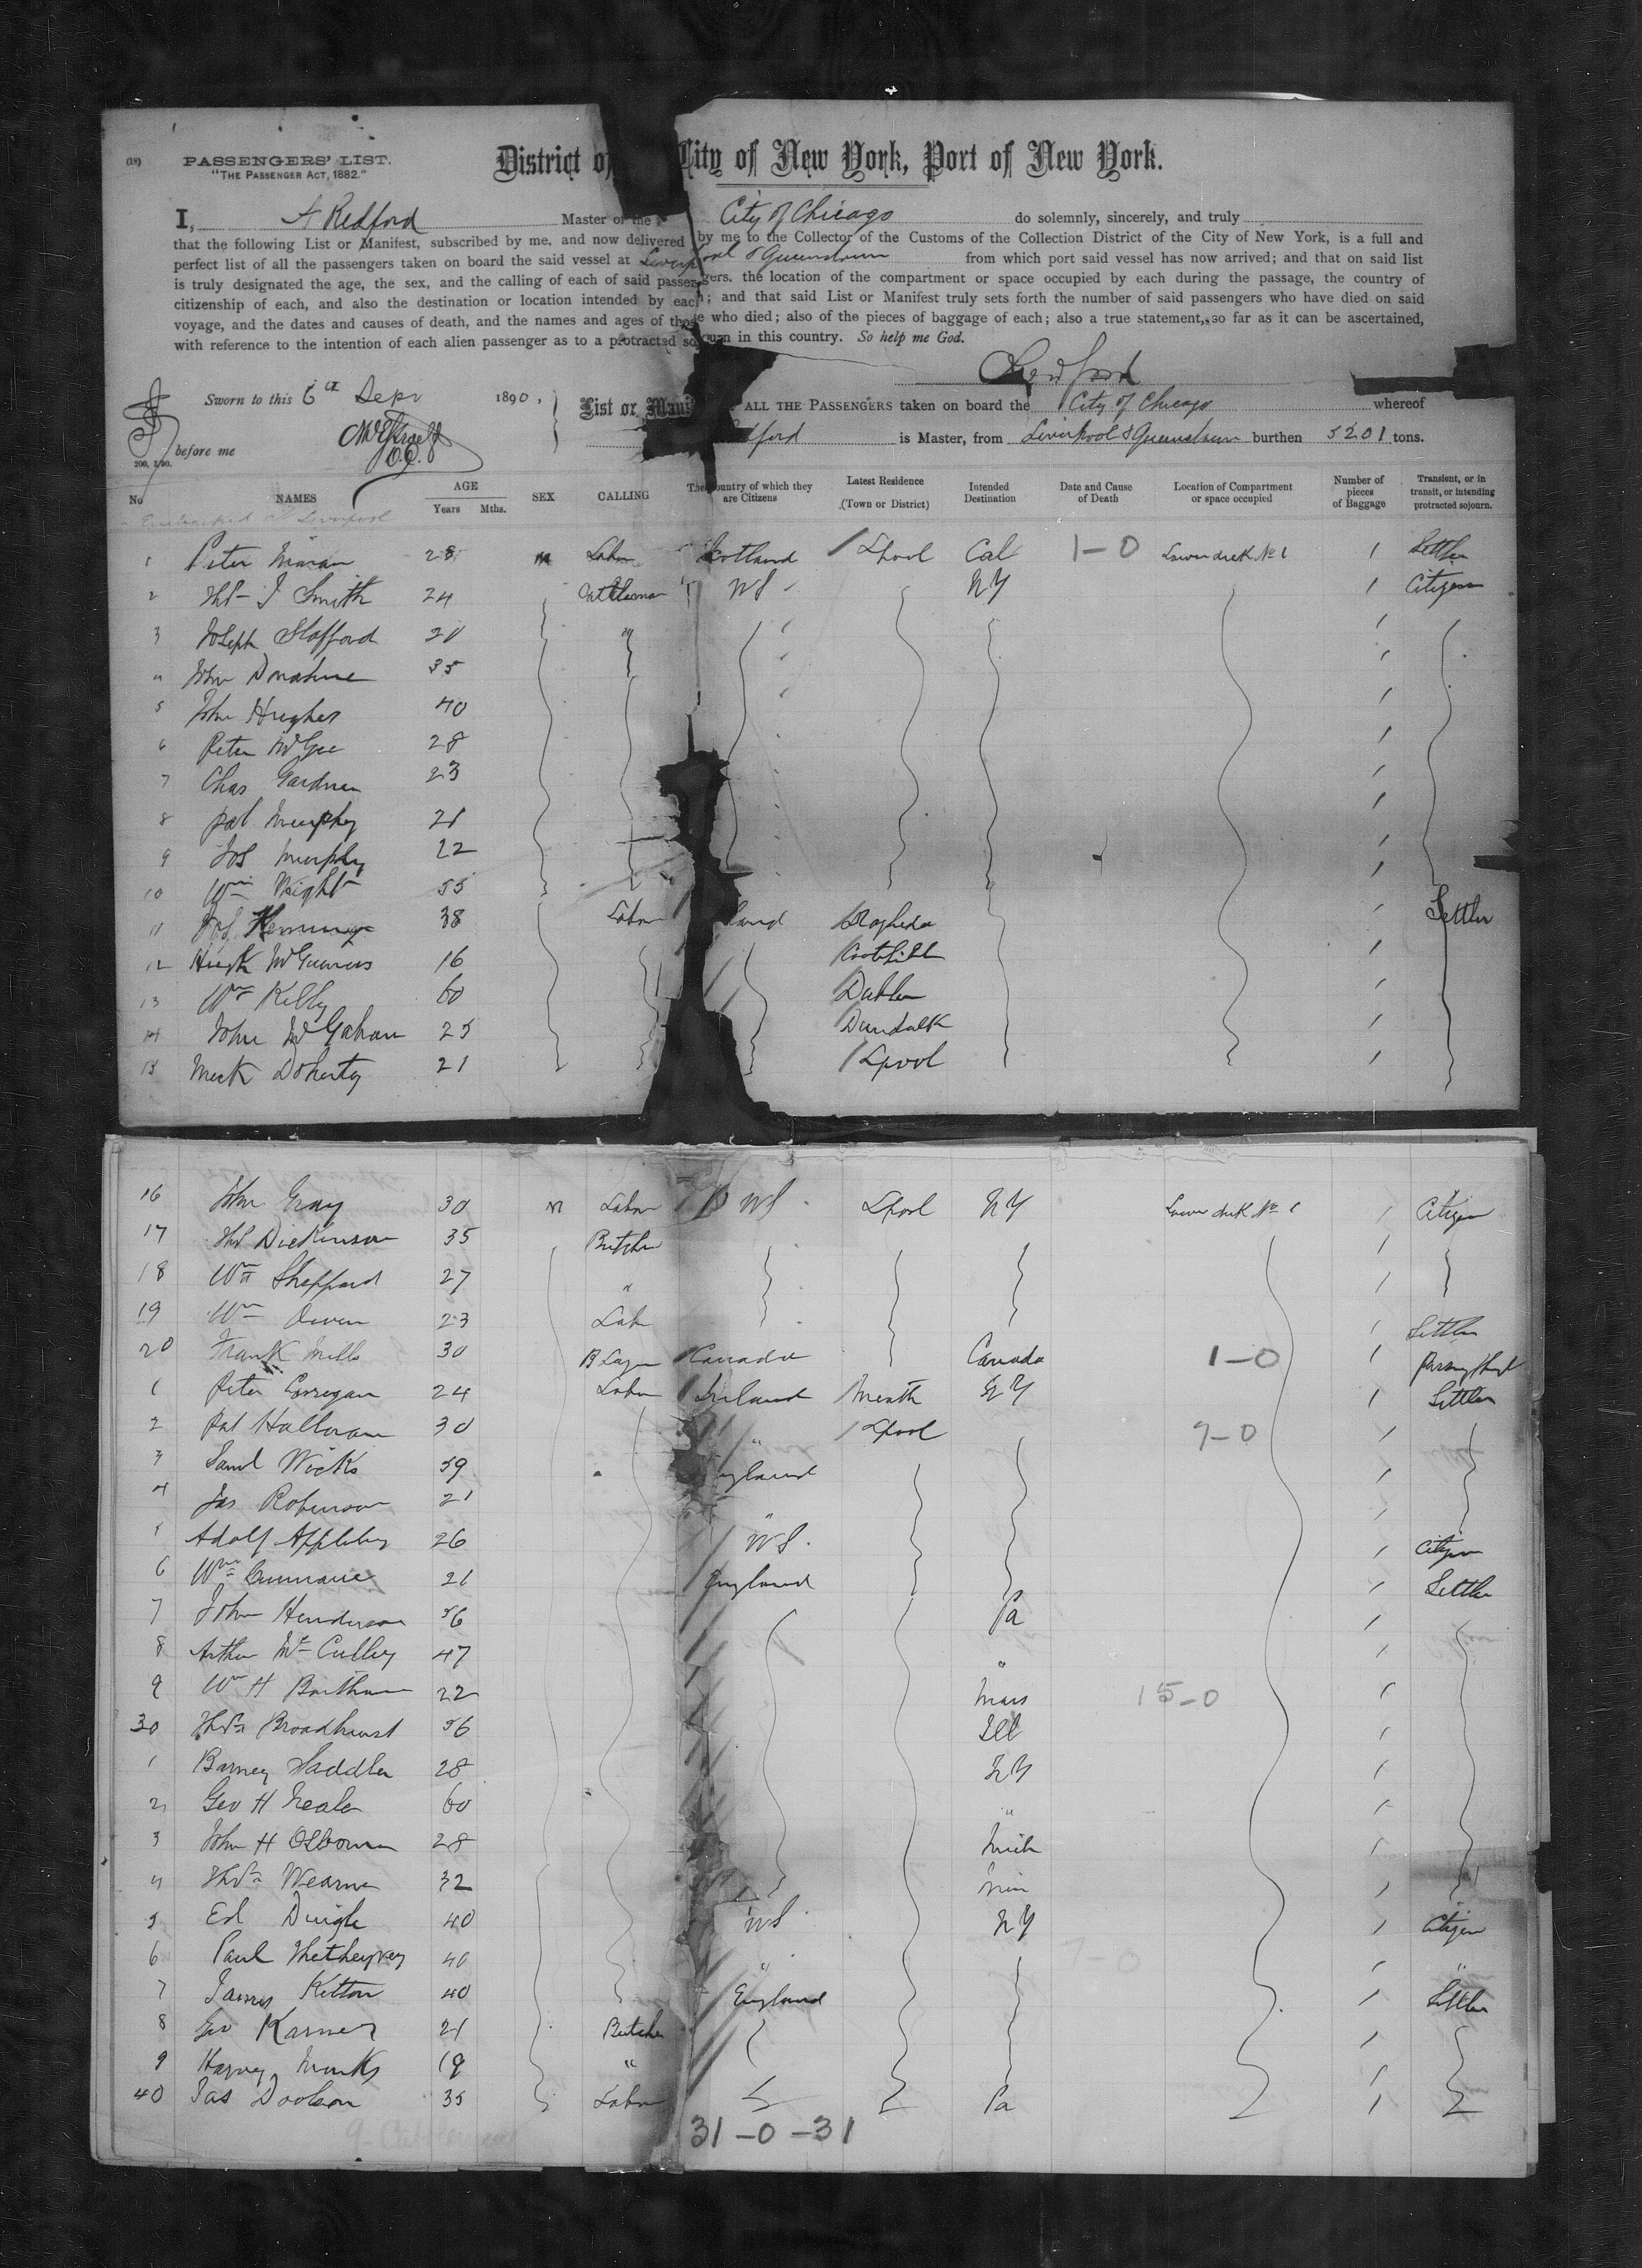 (18)
PASSENGERS' LIST.
"THE PASSENGER ACT, 1882."
District of City of New York, Port of New York.
I, A Redford Master of the City of Chicago do solemnly, sincerely, and truly
that the following List or Manifest, subscribed by me, and now delivered by me to the Collector of the Customs of the Collection District of the City of New York, is a full and
perfect list of all the passengers taken on board the said vessel at Liverpool & Queenstown from which port said vessel has now arrived; and that on said list
is truly designated the age, the sex, and the calling of each of said passengers, the location of the compartment or space occupied by each during the passage, the country of
citizenship of each, and also the destination or location intended by each; and that said List or Manifest truly sets forth the number of said passengers who have died on said
voyage, and the dates and causes of death, and the names and ages of those who died; also of the pieces of baggage of each; also a true statement, so far as it can be ascertained,
with reference to the intention of each alien passenger as to a protracted sojourn in this country. So help me God.
Redford
Sworn to this 6th Sepr 1890,
before me
List or Mani ALL THE PASSENGERS taken on board the City of Chicago whereof
dford is Master, from Liverpool & Queenstown burthen 5201 tons.
No NAMES AGE Years Mths. SEX CALLING The Country of which they are Citizens Latest Residence (Town or District) Intended Destination Date and Cause of Death Location of Compartment or space occupied Number of pieces of Baggage Transient, or in transit, or intending protracted sojourn.
Embarked at Liverpool
1 Peter Moran 28 m Labor Scotland Lpool Cal 1-0 Lower deck No 1 1 Settler
2 Thos J Smith 24 Cattleman US NY 1 Citizen
3 Joseph Stafford 20 " 1
4 John Donahue 35 1
5 John Hughes 40 1
6 Peter McGee 28 1
7 Chas Gardner 23 1
8 Pat Murphy 21 1
9 Jos Murphy 22 1
10 Wm Wright 55 1
11 Jos 38 Labor land Drogheda 1 Settler
12 Hugh McGuinness 16 Cootehill 1
13 Wm Kelly 60 Dublin 1
14 John McGahan 25 Dundalk 1
15 Mick Doherty 21 Lpool 1
16 John Gray 30 m Labor US Lpool NY Lower deck No 1 1 Citizen
17 Thos Dickinson 35 Butcher 1
18 Wm Sheppard 27 " 1
19 Wm Owen 23 Lab 1 Settler
20 Frank Mills 30 B Layer Canada Canada 1-0 1
1 Peter Corrigan 24 Labor Ireland Meath NY 1 Settler
2 Pat Halloran 30 " Lpool 9-0 1
3 Saml Wicks 59 England 1
4 Jas Robinson 21 " 1
5 Adolf Appleby 26 US 1 Citizen
6 Wm 21 England 1 Settler
7 John Henderson 56 Pa 1
8 Arthur McCulley 47 " 1
9 Wm H 22 Mass 15-0 1
30 Thos Broadhurst 56 Ill 1
1 Barney Saddler 28 NY 1
2 Geo H Neale 60 " 1
3 John H Osborne 28 Mich 1
4 Thos Wearne 32 Min 1
5 Ed 40 US NY 1 Citizen
6 Paul 40 " 1 "
7 James Kitton 40 England 1 Settler
8 Geo Karner 21 Butcher 1
9 Harvey Monks 19 " 1
40 Jas Doolson 35 Labor Pa 1
31-0-31